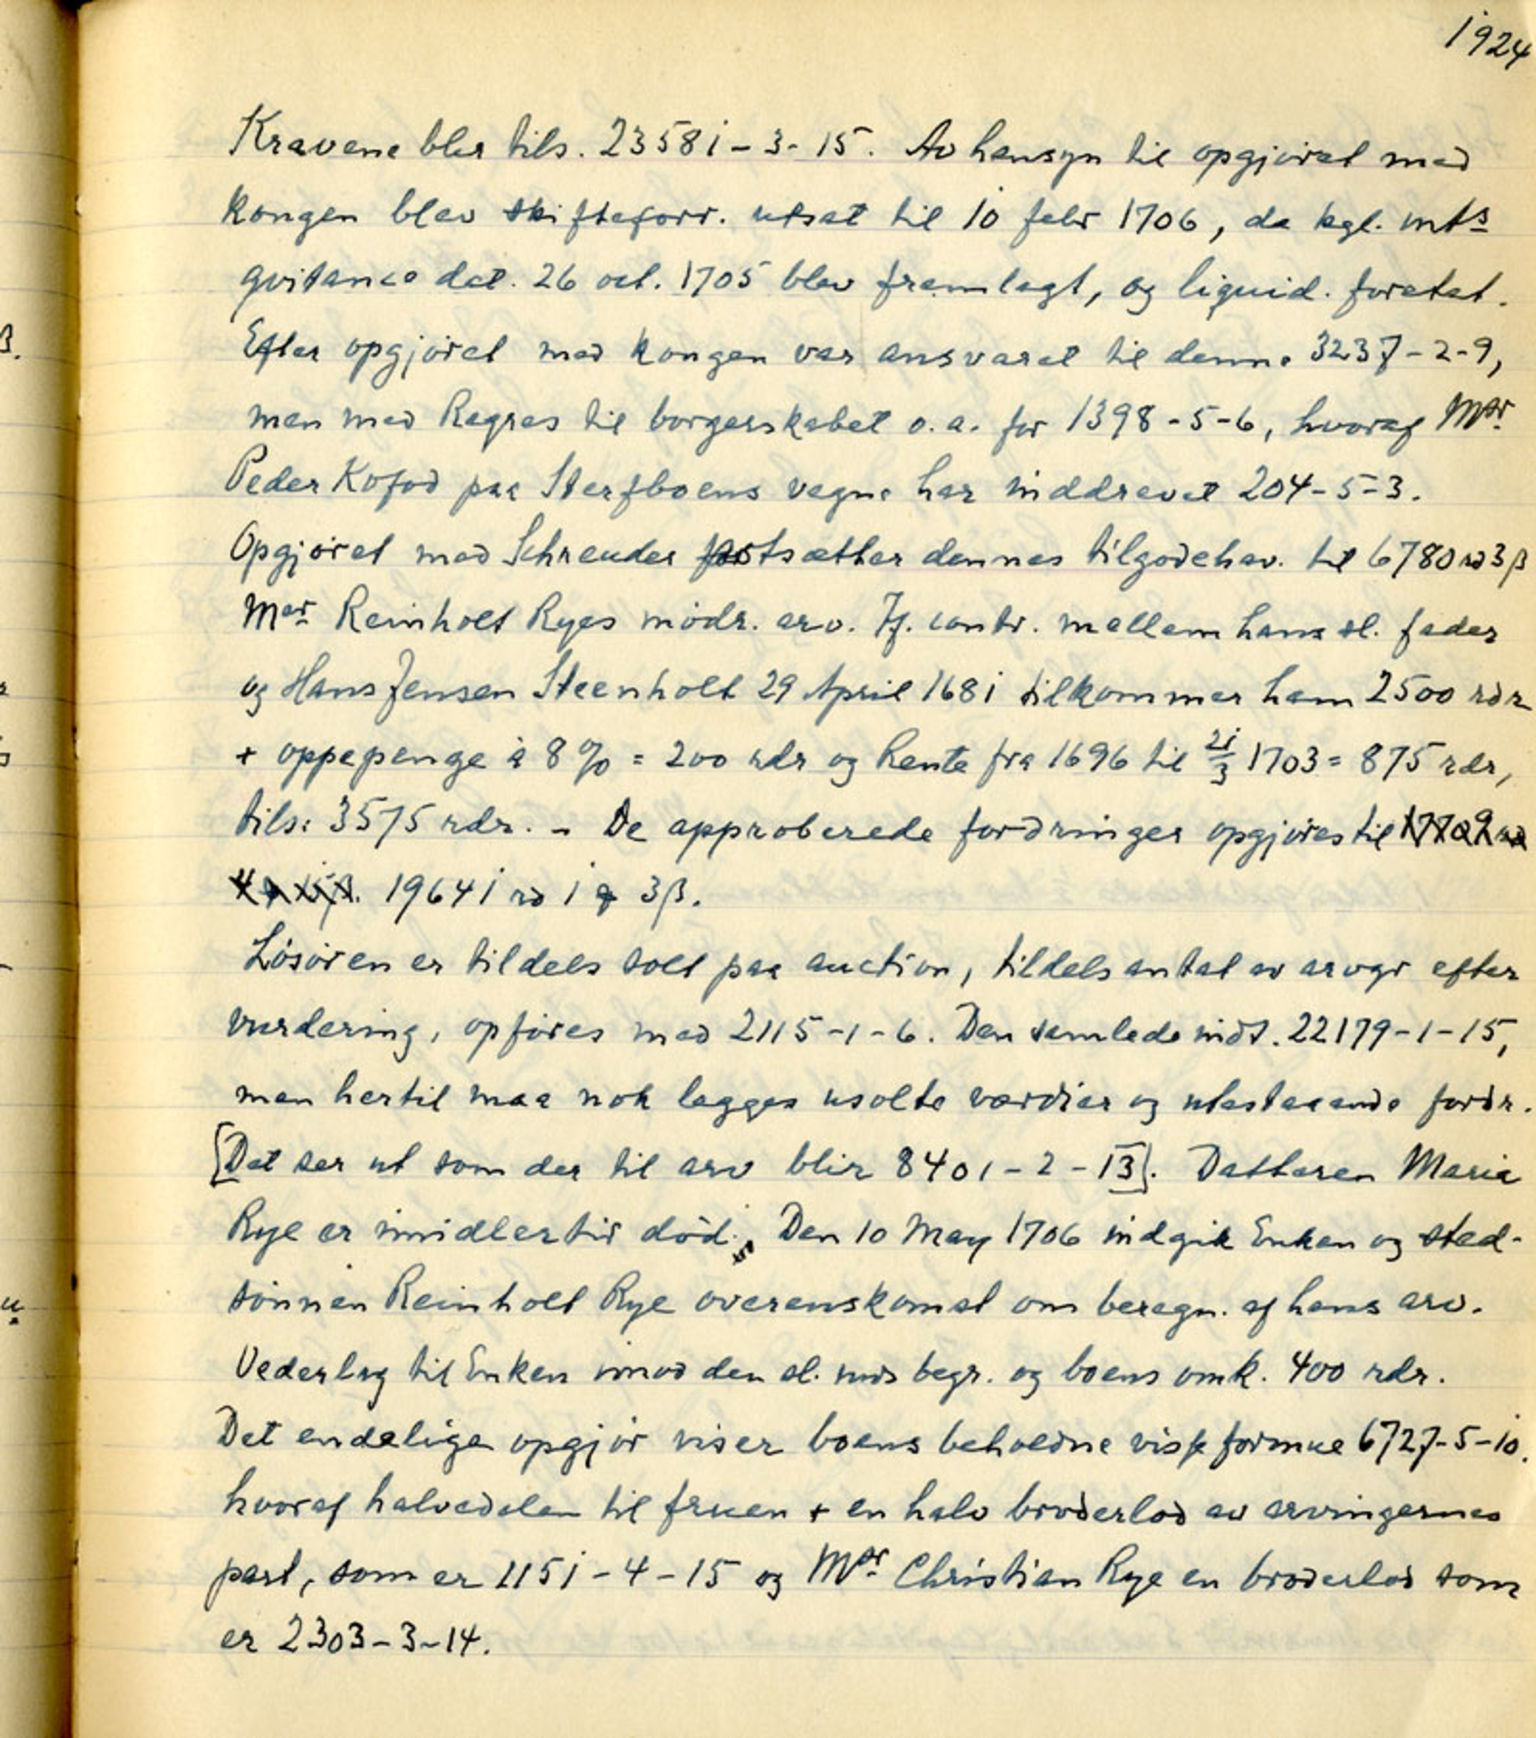 1924
Kravene bler tils. 23581-3-15. Av hensyn til opgjøret med
kongen blev skifteforr. utsat til 10 febr 1706, da kgl. mts
qvitance dat. 26 oct. 1705 blev fremlagt, og liquid. foretat.
Efter opgjøret med kongen var ansvaret til denne 3237-2-9,
men med Regres til borgerskabet o.a. for 1398-5-6, hvoraf Msr
Peder Kofod paa Sterfboens vegne har inddrevet 204-5-3.
Opgjøret med Schreuder fortsætter dennes tilgodehav. til 6780 rd 3 ß
Msr Reinholt Ryes mödr. arv. Jf. contr. mellem hans sl. fader
og Hans Jensen Steenholt 29 April 1681 tilkommer ham 2500 rdr
+ oppepenge à 8 % = 200 rdr og Rente fra 1696 til 21/3 1703 = 875 rdr,
tils: 3575 rdr. - De approberede fordringer opgjøres til
19641 rd 1 q 3 ß.
Løsøren er tildels solt paa auction, tildels antat av arvgr efter
vurdering, opføres med 2115-1-6. Den samlede indt. 22179-1-15,
men hertil maa nok lægges usolte værdier og utestaaende fordr.
[Det ser ut som der til arv blir 8401-2-13]. Datteren Maria
Rye er imidlertid død. Den 10 May 1706 indgik Enken og sted-
sønnen Reinholt Rye overenskomst om beregn. af hans arv.
Vederlag til Enken imod den sl. mds begr. og boens omk. 400 rdr.
Det endelige opgjör viser boens beholdne visse formue 6727-5-10.
hvoraf halvedelen til fruen + en halv broderlod av arvingernes
part, som er 1151-4-15 og Msr Christian Rye en broderlod som
er 2303-3-14.